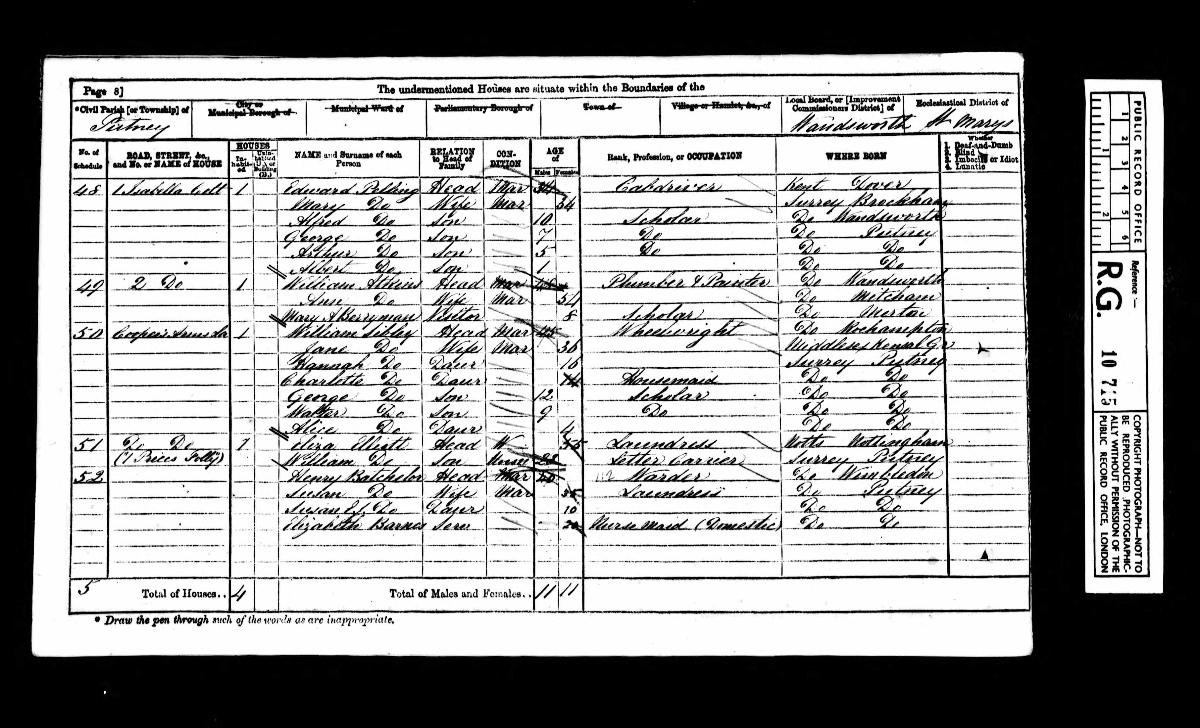 Page 8] The undermentioned Houses are situate within the Boundaries of the
*Civil Parish [or Township] of City or Municipal Borough of Municipal Ward of Parliamentary Borough of Town of Village or Hamlet, &c., of Local Board, or [Improvement Commissioners District] of Ecclesiastical District of
Putney Wandsworth St Marys
No. of Schedule ROAD, STREET, &c., and No. or NAME of HOUSE HOUSES Inhabited Uninhabited (U.), or Building (B.) NAME and Surname of each Person RELATION to Head of Family CONDITION AGE of Males Females Rank, Profession, or OCCUPATION WHERE BORN Whether 1. Deaf-and-Dumb 2. Blind 3. Imbecile or Idiot 4. Lunatic
48 1 Isabella Cott 1 Edward Head Mar 34 Cabdriver Kent Dover
Mary Do Wife Mar 34 Surrey Brockham
Alfred Do Son 10 Scholar Do Wandsworth
George Do Son 7 Do Do Putney
Arthur Do Son 5 Do Do Do
Albert Do Son 1 Do Do
49 2 Do 1 William Atkins Head Mar Plumber & Painter Do Wandsworth
Ann Do Wife Mar 54 Do Mitcham
Mary A Berryman Visitor 8 Scholar Do Merton
50 Coopers Arms La 1 William Sibly Head Mar 45 Wheelwright Do Rochampton
Jane Do Wife Mar 36 Middlesex Kensal Gr
Hannah Do Daur 16 Surrey Putney
Charlotte Do Daur 14 Housemaid Do Do
George Do Son 12 Scholar Do Do
Walter Do Son 9 Do Do Do
Alice Do Daur 4 Do Do
51 Do Do 1 Eliza Elliott Head W Laundress Notts Nottingham
(7 Prices Folly) William Do Son Unm Letter Carrier Surrey Putney
52 Henry Batchelor Head Mar 40 Warder Do Wimbledon
Susan Do Wife Mar Laundress Do Putney
Susan Do Daur 10 Do Do
Elizabeth Barnes Serv 20 Nurse Maid (Domestic) Do Do
5 Total of Houses.. 4 Total of Males and Females.. 11 11
* Draw the pen through such of the words as are inappropriate.
PUBLIC RECORD OFFICE
1 2 3 4 5 6
1 2
Reference:-
R.G. 10 715
COPYRIGHT PHOTOGRAPH—NOT TO
BE REPRODUCED PHOTOGRAPHIC-
ALLY WITHOUT PERMISSION OF THE
PUBLIC RECORD OFFICE, LONDON